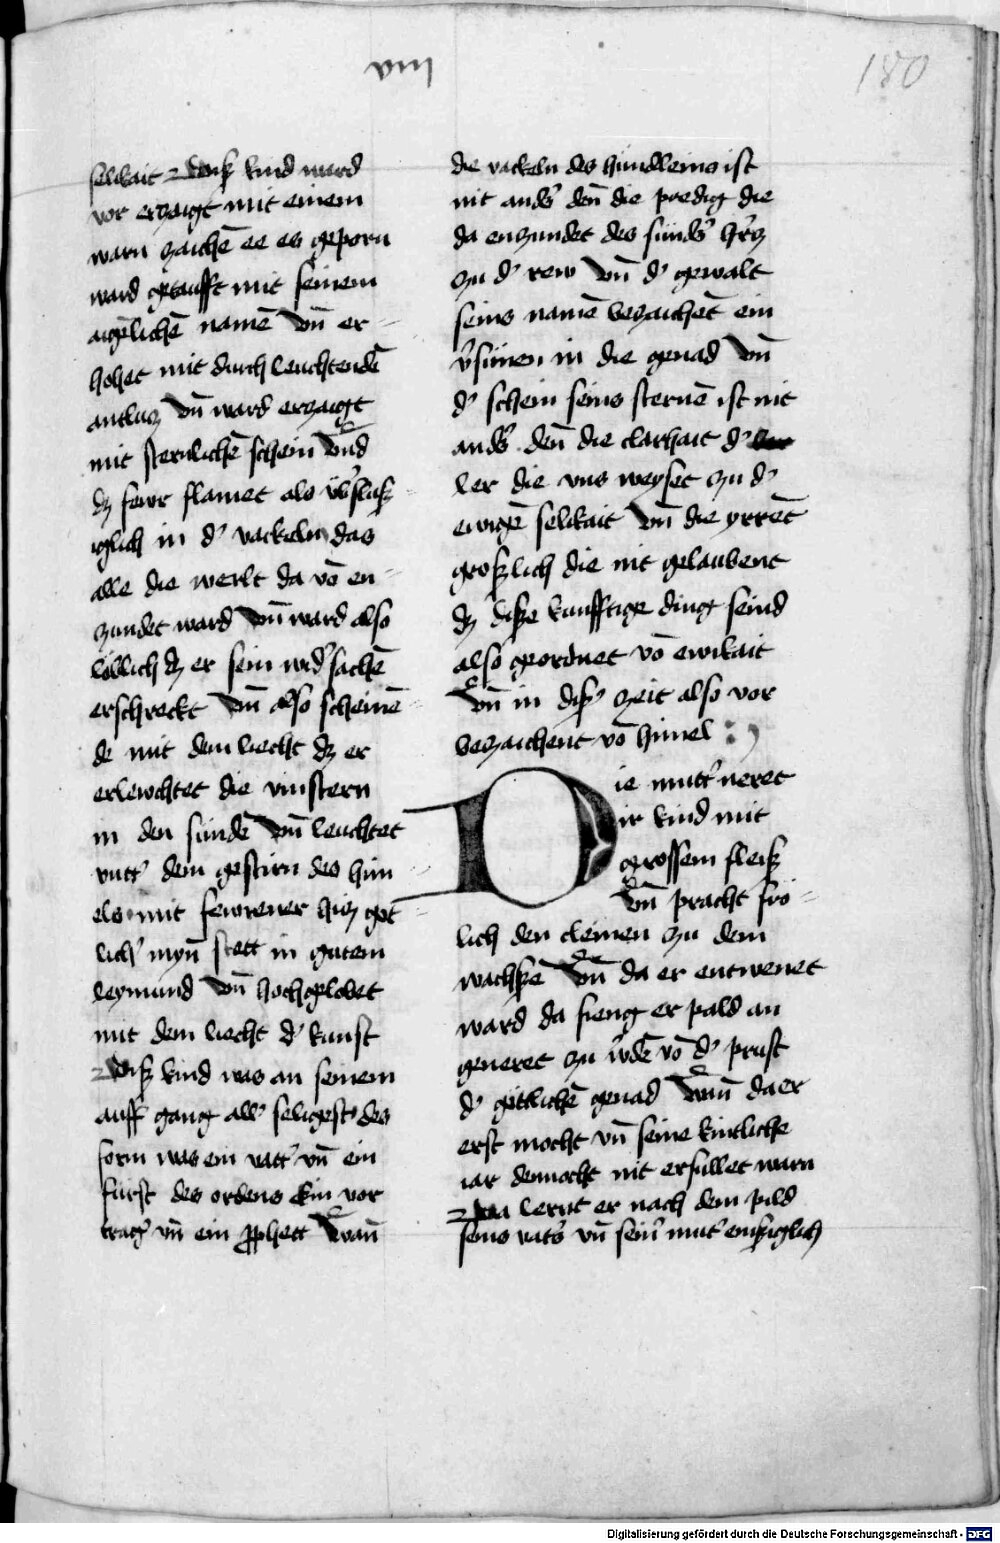 viij
180
selikait Diß kind ward
vor erzaigt mit einem
warn zaichē ee es geporn
ward getaufft mit seinem
aigēlichē namē Vn̄ er-
hohet mit durch leuchtendē
antlutz Vn̄ ward erzaigt
mit sternlichē schein Vnd
dz fewr flamet als vb'fluß
iglich in d' vackeln das
alle die werlt da vō en-
zundet ward Vn̄ ward also
löblich dz er sein wid'sachē
erschreckt Vn̄ also scheinē-
de mit dem liecht dz er
erlewchtet die vinstern
in den sundē Vn̄ leuchtet
vntt' dem gestirn des him
els mit fewrener hitz got-
lich' myn̄ stett in gutem
leymund Vn̄ hochgelobet
mit dem liecht d' kunst
Diß kind was an seinem
auff gang all' seligest' des
form was ein vatt' vn̄ ein
furst des ordens Ein vor
trag' vn̄ ein prophett Wan̄
die vackeln des hundleins ist
nit and's den̄ die predig die
da enzundet des sund's h'tz
zu d' rew Vn̄ d' gewalt
seins namē bezaichēt ein
v'sünen in die genad Vn̄
d' schein seins sternē ist nit
and's den̄ die clarhait d'
ler die vns weyset zu d'
ewigē selikait Vn̄ die yrrēt
großlich die nit gelaubent
dz diße kunfftige ding seind
also geordnet vō ewikait
Vn̄ in diß' zeit also vor
bezaichent vō himel
Die mutt' neret
ir kind mit
grossem fleiß
Vn̄ pracht frö-
lich den cleinen zu dem
wachßē Vn̄ da er entwenet
ward da fieng er pald an
generet zu w'dē vō d' prust
d' gotlichē genad Wan̄ da er
erst mocht vn̄ seine kintliche
iar dennocht nit erfullet warn
Da lernt er nach dem pild
seins vat's vn̄ sein' mut' emßiglich
Digitalisierung gefördert durch die Deutsche Forschungsgemeinschaft - DFG